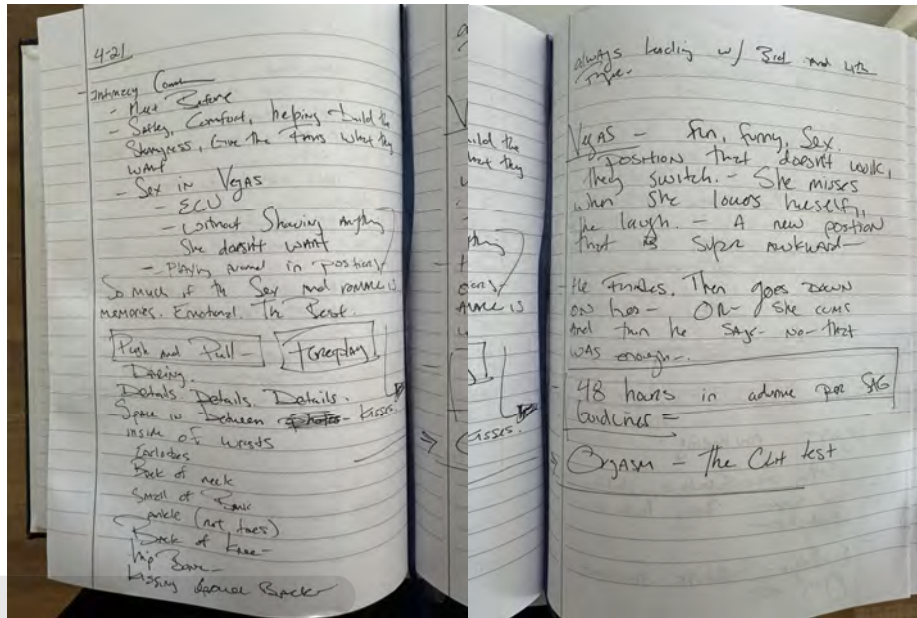 4-21
Intimacy Coach
- Meet Before
- Saftey, Comfort, helping build the
Strangness, Give the Fans what they
want
- Sex in Vegas
- ECU
- without Showing Anything
She doesn't want
- Playing around in positions
So much if the Sex and romance is
memories. Emotional. The Best.
Push and Pull - Foreplay
Daring.
Details. Details. Details.
Space in Between kisses.
inside of wrists
Earlobes
Back of neck
Small of Back
ankle (not toes)
Back of knee -
hip Bone -
kissing Back
always leading w/ 3rd and 4th
Vegas - fun, funny, Sex.
position that doesn't work,
they switch. - She misses
when she lowers herself,
he laugh. - A new postion
that is Super Awkward -
- He Finishes. Then goes down
on her - OR - she cums
And then he says - No - that
was enough -.
48 hours in advance per SAG
Guidlines =
Orgasm - The Clit test